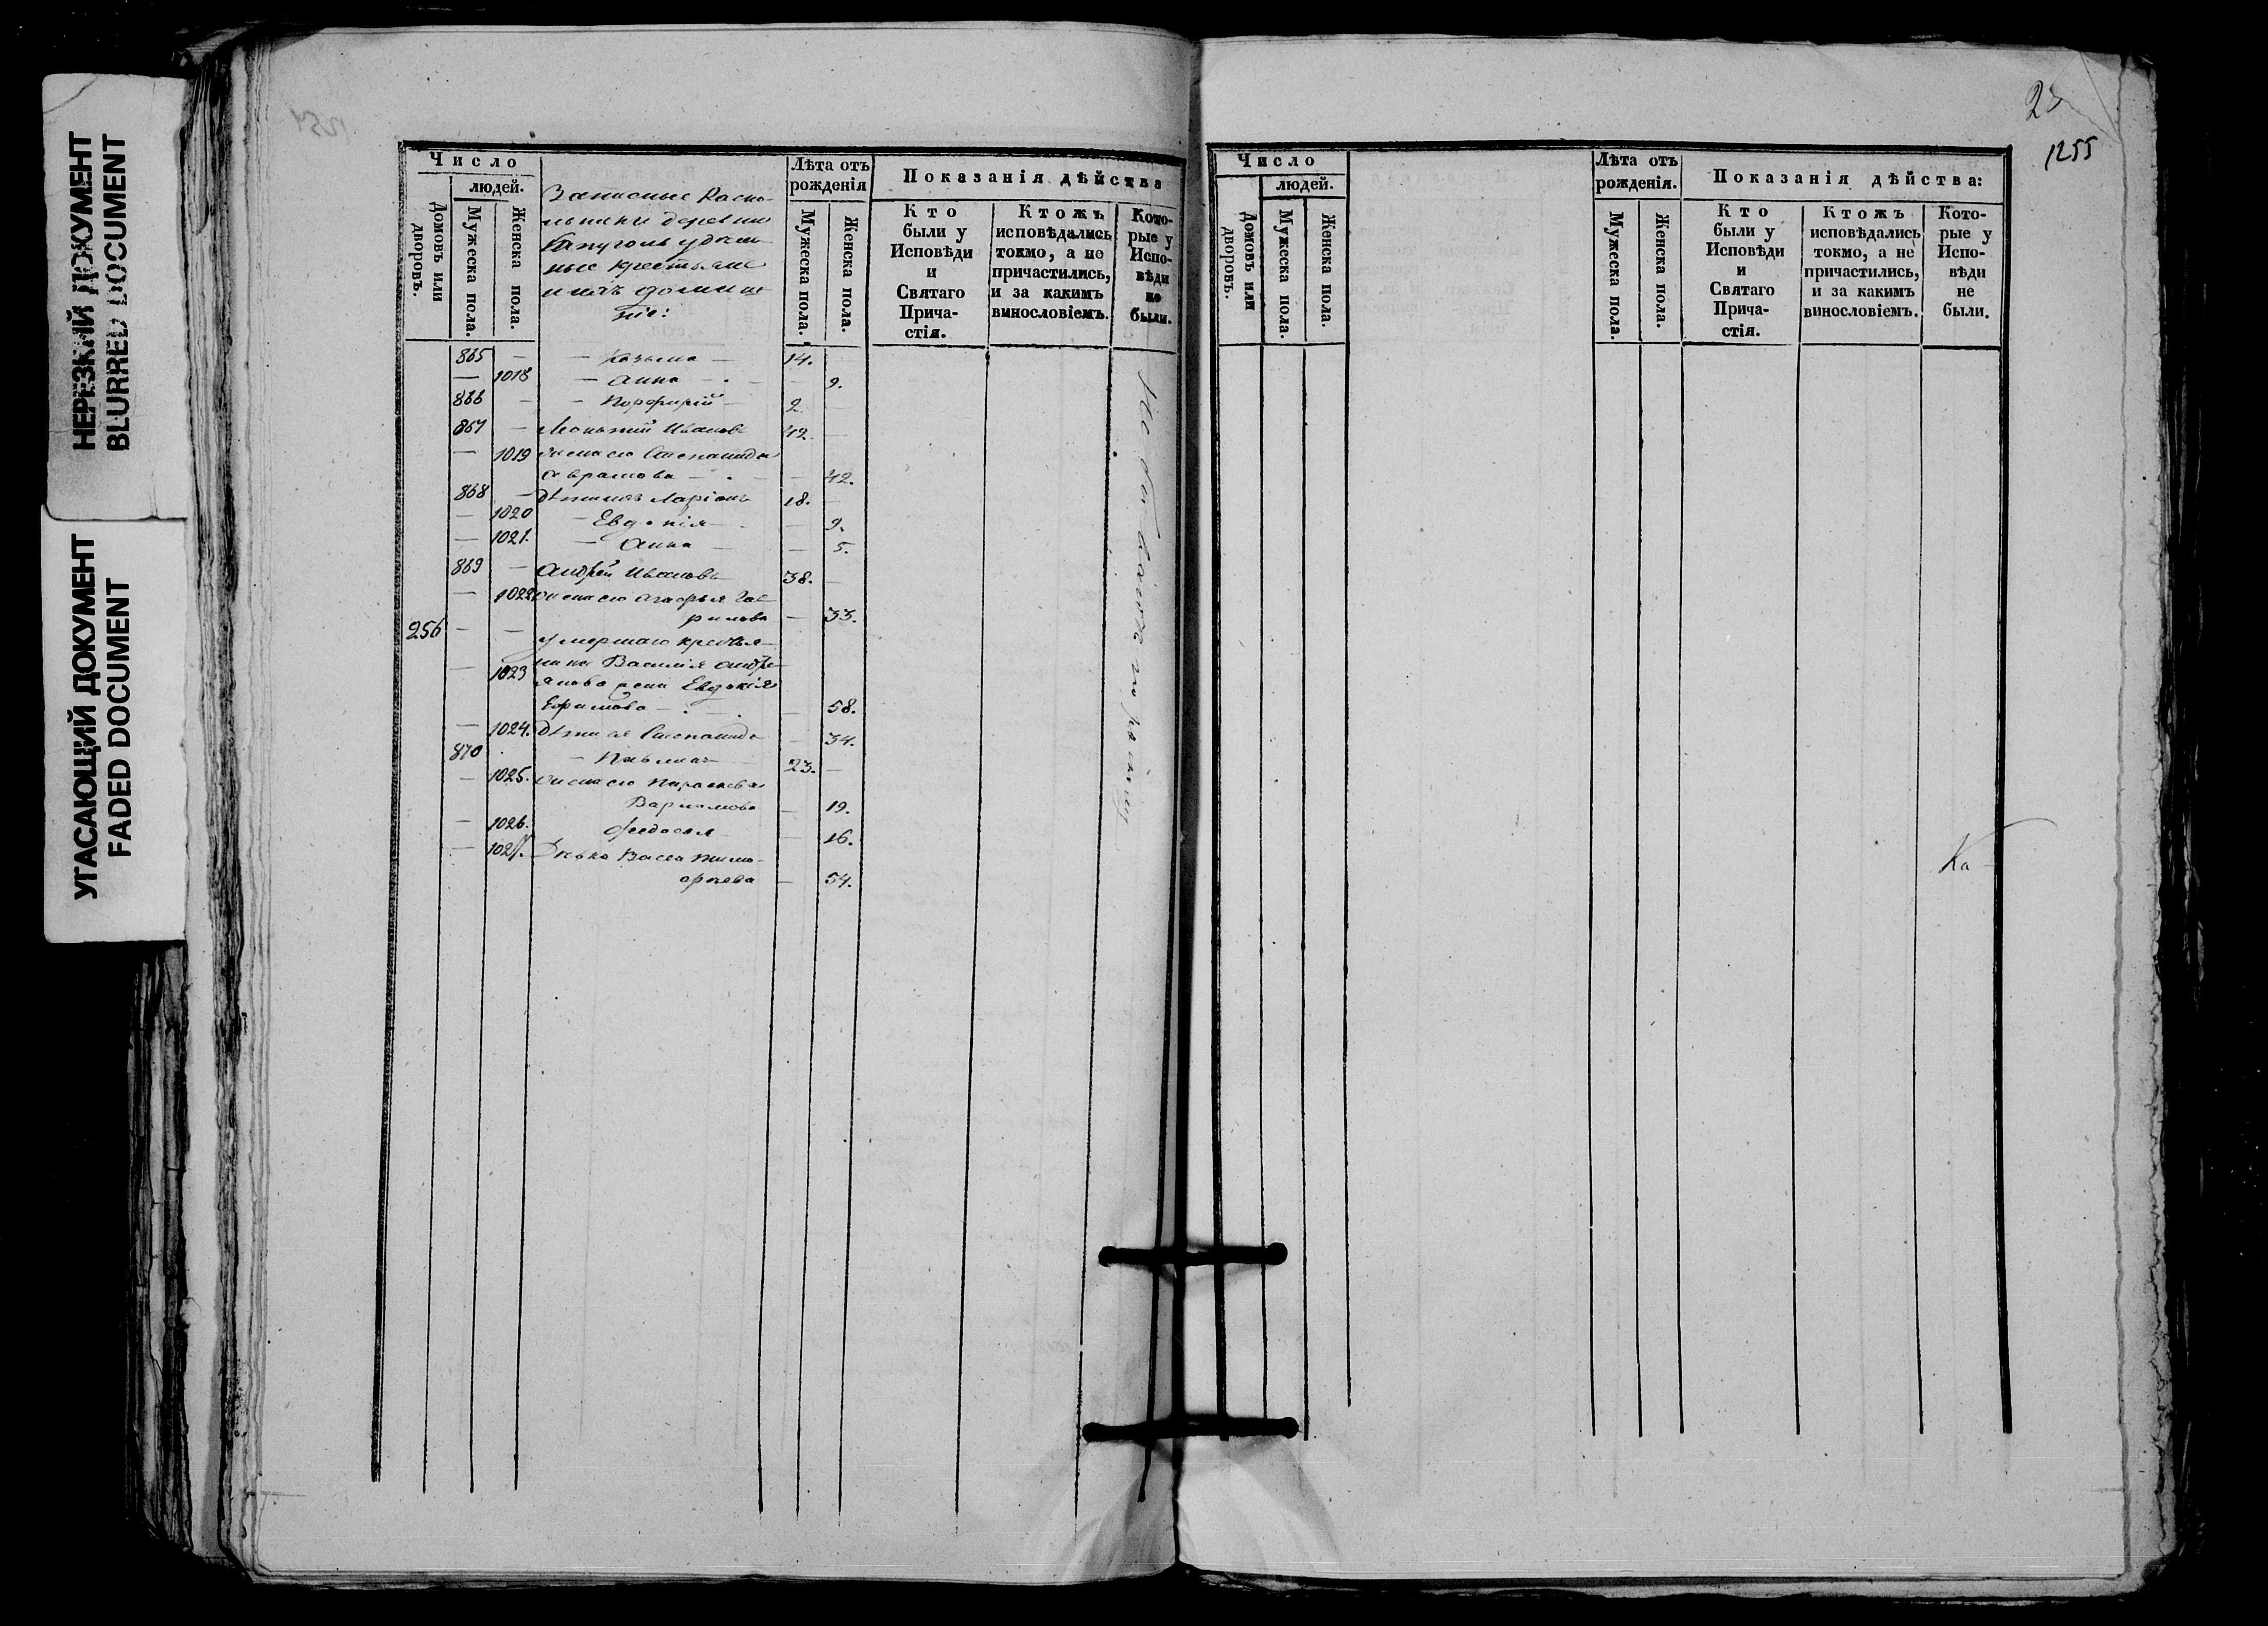 НЕРЕЗКИЙ ДОКУМЕНТ
BLURRED DOCUMENT
УГАСАЮЩИЙ ДОКУМЕНТ
FADED DOCUMENT
1254
Число
людей.
Домовъ или дворовъ.
Мужеска пола.
Женска пола.
Записные Раско-
льники деревни
удѣль-
ные крестьяне
и ихъ домаш
ніе:
Лѣта отъ рожденія
Мужеска пола.
Женска пола.
Показанія дѣйства
Кто были у Исповѣди и Святаго Прича-стія.
Ктожъ исповѣдались токмо, а не причастились, и за какимъ винословіемъ.
Кото-рые у Испо-вѣди не были.
865 — — Козьма — 14. —
— 1018 — Анна — — 9.
866 — — Порфирій — 2 —
867 — Леонтий Ивановъ 42 —
— 1019 жена его Степанида
Аврамова — — 42.
868 — дѣти ихъ Ларіонъ 18. —
— 1020 — Евдокія — — 9.
— 1021. — Анна — — 5.
869 — Андрей Ивановъ 38. —
— 1022 жена его Агафья Гав-
рилова — 33.
256 — — умершаго крестья-
нина Василія Андре-
— 1023 янова жена Евдокія
Ефимова — — 58.
— 1024. дѣти ея Степанида — 34.
870 — 23. —
— 1025. жена его Параскева
Варламова — 19.
— 1026. Федосья — — 16.
— 1027. Дѣвка Васса Тимо-
фѣева — 54.
Не бы по расколу
23
1255
Число
людей.
Домовъ или дворовъ.
Мужеска пола.
Женска пола.
Лѣта отъ рожденія.
Мужеска пола.
Женска пола.
Показанія дѣйства:
Кто были у Исповѣди и Святаго Прича-стія.
Ктожъ исповѣдались токмо, а не причастились, и за какимъ винословіемъ.
Кото-рые у Испо-вѣди не были.
Ка